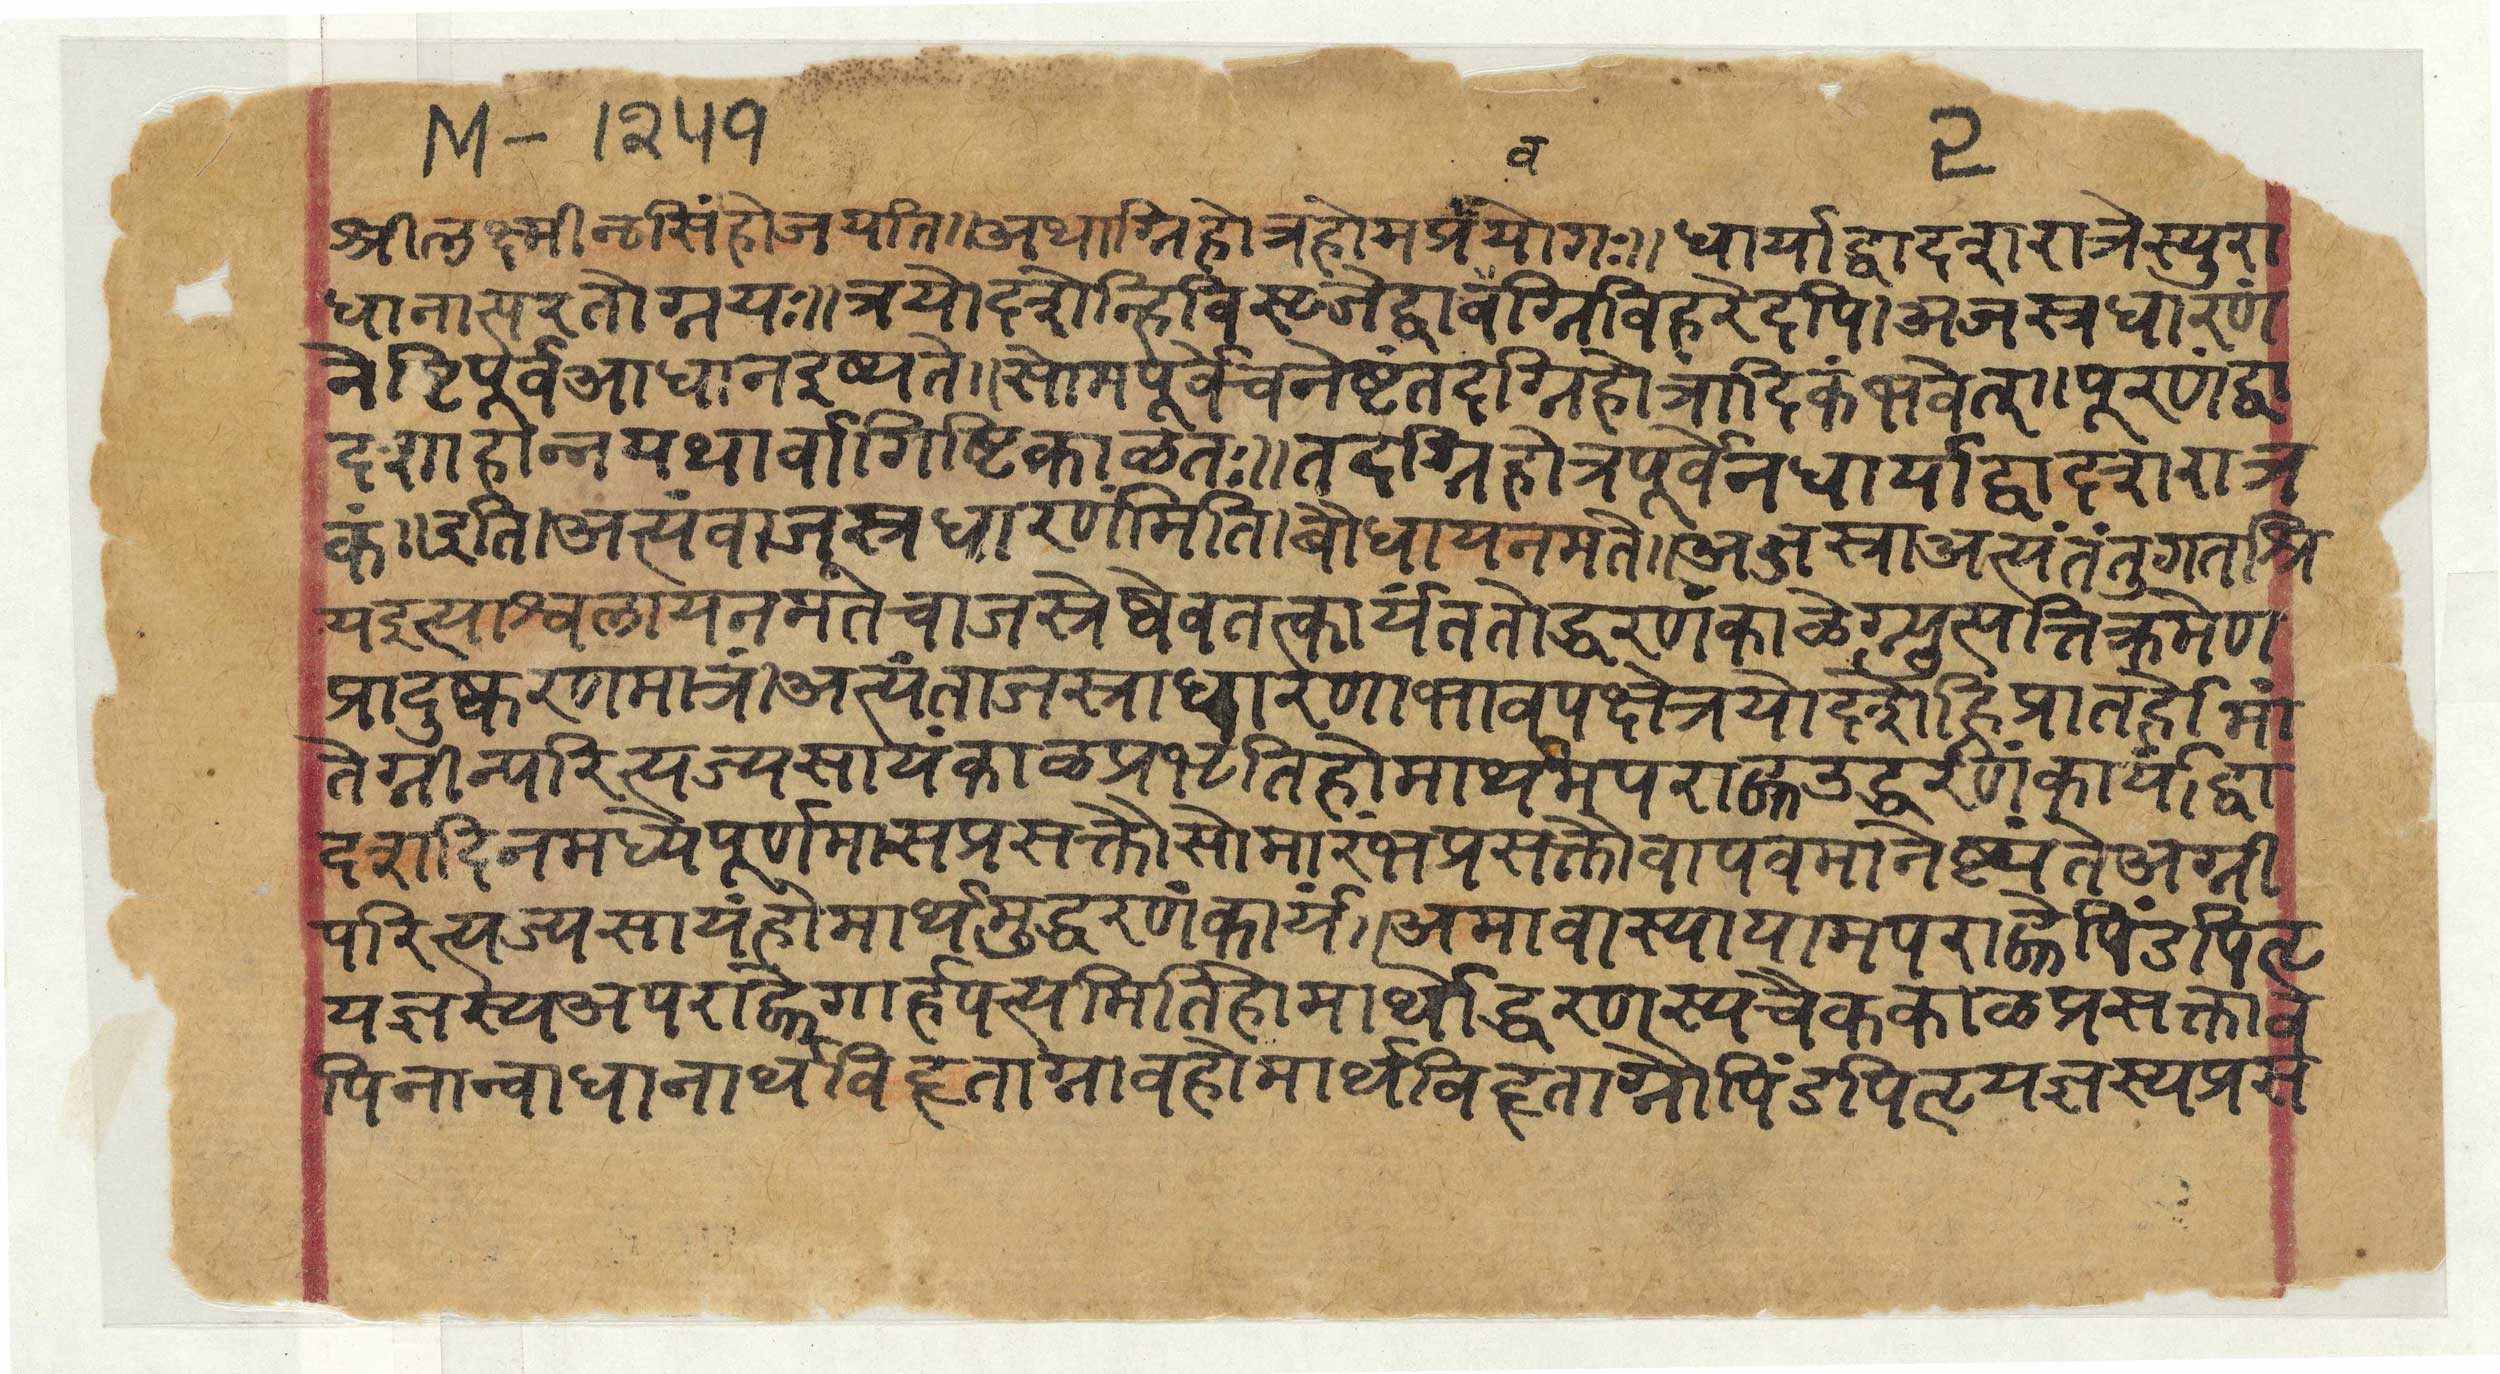 M - १२५१
व
२
श्रीलक्ष्मीनृसिंहोजयति॥अथाग्निहोत्रहोमप्रयोगः॥ धार्याद्वादशरात्रेस्युरा
धानात्परतोग्नयः॥त्रयोदशेन्हिविसृजेद्वावग्निविहरेदपि।अजस्रधारणं
नेष्टिपूर्वआधानइष्यते॥सोमपूर्वेचनेष्टंतदग्निहोत्रादिकंभवेत्॥पूरणंद्वा
दशाहोन्नयथार्वागिष्टिकाळतः॥तदग्निहोत्रपूर्वेनधार्याद्वादशरात्र
कं॥इति।अत्यंवाजस्रधारणंमिति।बौधायनमते॥अजस्राअत्यंतंतुगतश्रि
यइत्याश्वलायनमतेचाजस्रेष्वेवतत्कार्यंततोद्धरणंकाळेग्न्युत्पत्तिक्रमेण
प्रादुष्करणमात्रं।अत्यंताजस्राधारणाभावपक्षेत्रयोदशेहिप्रातर्होमां
तेग्नीन्परित्यज्यसायंकाळप्रभृतिहोमार्थमपराह्णउद्धरणंकार्यंद्वा
दशदिनमध्येपूर्णमासप्रसक्तौसोमारंभप्रसक्तौवापवमानेष्ट्यंतेअग्नी
परित्यज्यसायंहोमार्थमुद्धरणंकार्यं॥अमावास्यायामपराह्णेपिंडपितृ
यज्ञस्यअपराह्णेगार्हपत्यमितिहोमार्थोद्धरणस्यचैककाळप्रसक्ताव
पिनान्वाधानार्थविहृताग्नावहोमार्थविहृताग्नौपिंडपितृयज्ञस्यप्रस